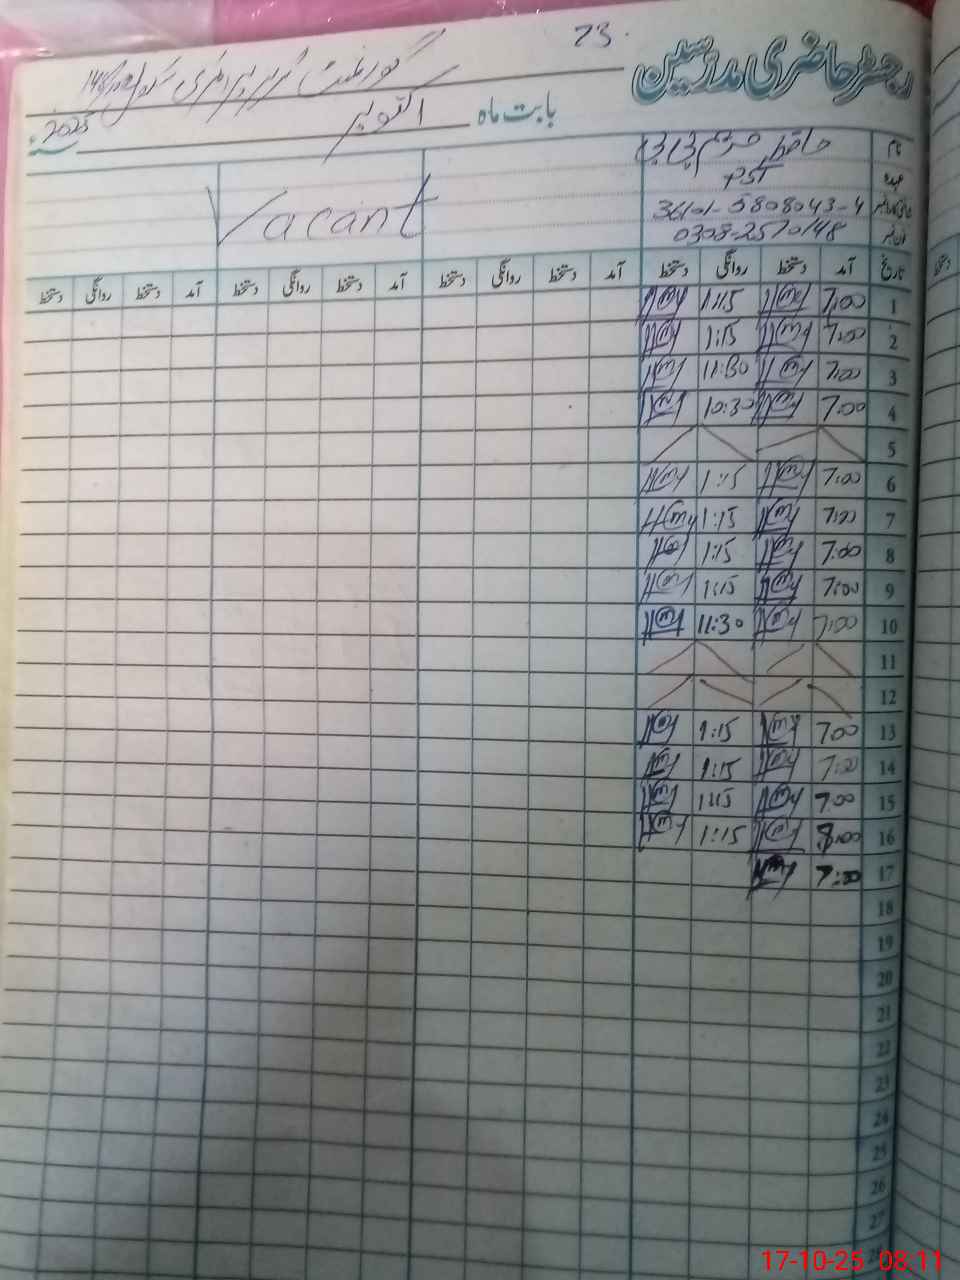 23
رجسٹر حاضری مدرسین
گورنمنٹ گرلز پرائمری سکول
بابت ماہ اکتوبر 2025ء
نام حافظہ مریم بی بی
عہدہ PST
36101-5808043-4
0308-2570148
Vacant
تاریخ آمد دستخط روانگی دستخط آمد دستخط روانگی دستخط آمد دستخط روانگی دستخط
1 7:00 1:15
2 7:00 1:15
3 7:00 11:30
4 7:00 10:30
5
6 7:00 1:15
7 7:00 1:15
8 7:00 1:15
9 7:00 1:15
10 7:00 11:30
11
12
13 7:00 1:15
14 7:00 1:15
15 7:00 1:15
16 8:00 1:15
17 7:00
18
19
20
21
22
23
24
25
26
27
17-10-25 08:11